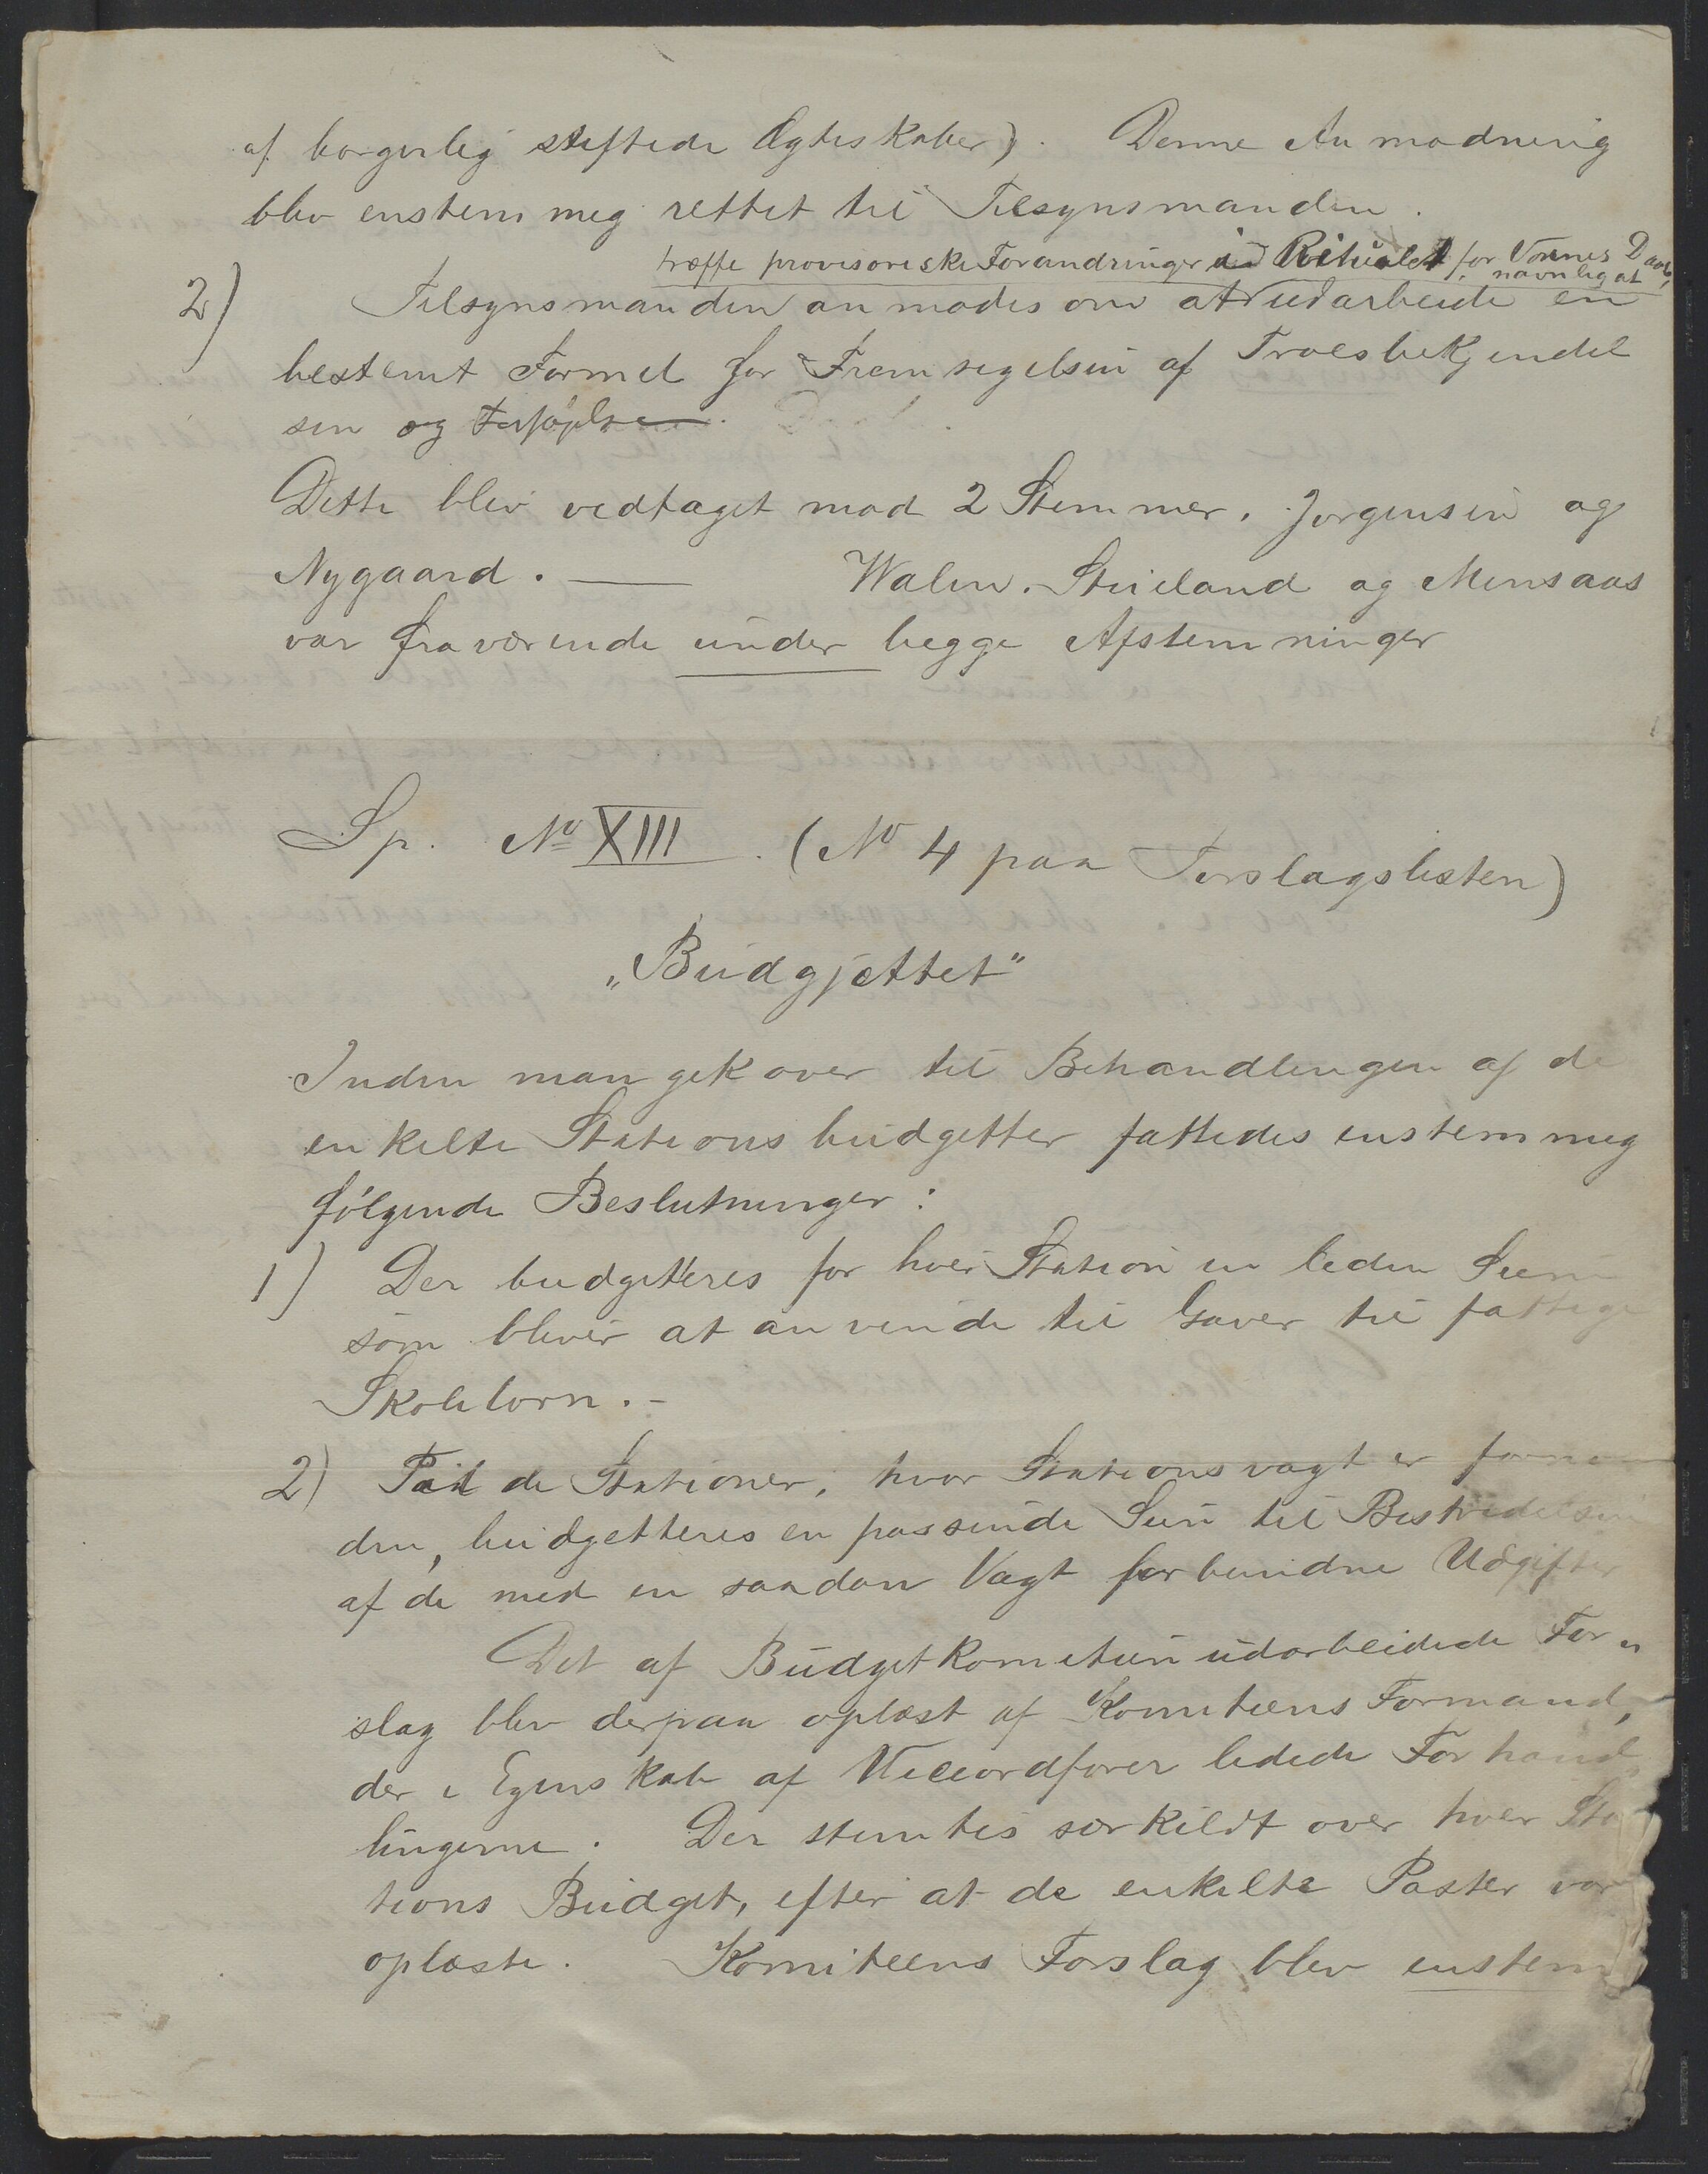 af borgerlig stiftede Ægteskaber). Denne Anmodning
blev enstemmig rettet til Tilsynsmanden.
træffe provisoriske Forandringer i Ritualet for Voxnes Daab,
navnlig at
2) Tilsynsmanden anmodes om at udarbeide en
bestemt Formel for Fremsigelsen af Troesbekjendel
sen og
Dette blev vedtaget mod 2 Stemmer, Jørgensen og
Nygaard. — Walen, Stueland og Mensaas
var fraværende under begge Afstemninger
Sp. No XIII. (No 4 paa Forslagslisten)
„Budgjettet"
Inden man gik over til Behandlingen af de
enkelte Stationsbudgetter fattedes enstemmig
følgende Beslutninger:
1) Der budgetteres for hver Station en liden Sum
som bliver at anvende til Gaver til fattige
Skolebørn. -
2) Paa de Stationer, hvor Stationsvagt er fornø
den, budgetteres en passende Sum til Bestridelsen
af de med en saadan Vagt forbundne Udgifter
Det af Budgetkomiteen udarbeidede For„
slag blev derpaa oplæst af Komiteens Formand,
der i Egenskab af Viceordfører ledede Forhand„
lingerne. Der stemtes særkildt over hver Sta
tions Budget, efter at de enkelte Poster var
oplæste. Komiteens Forslag blev enstem